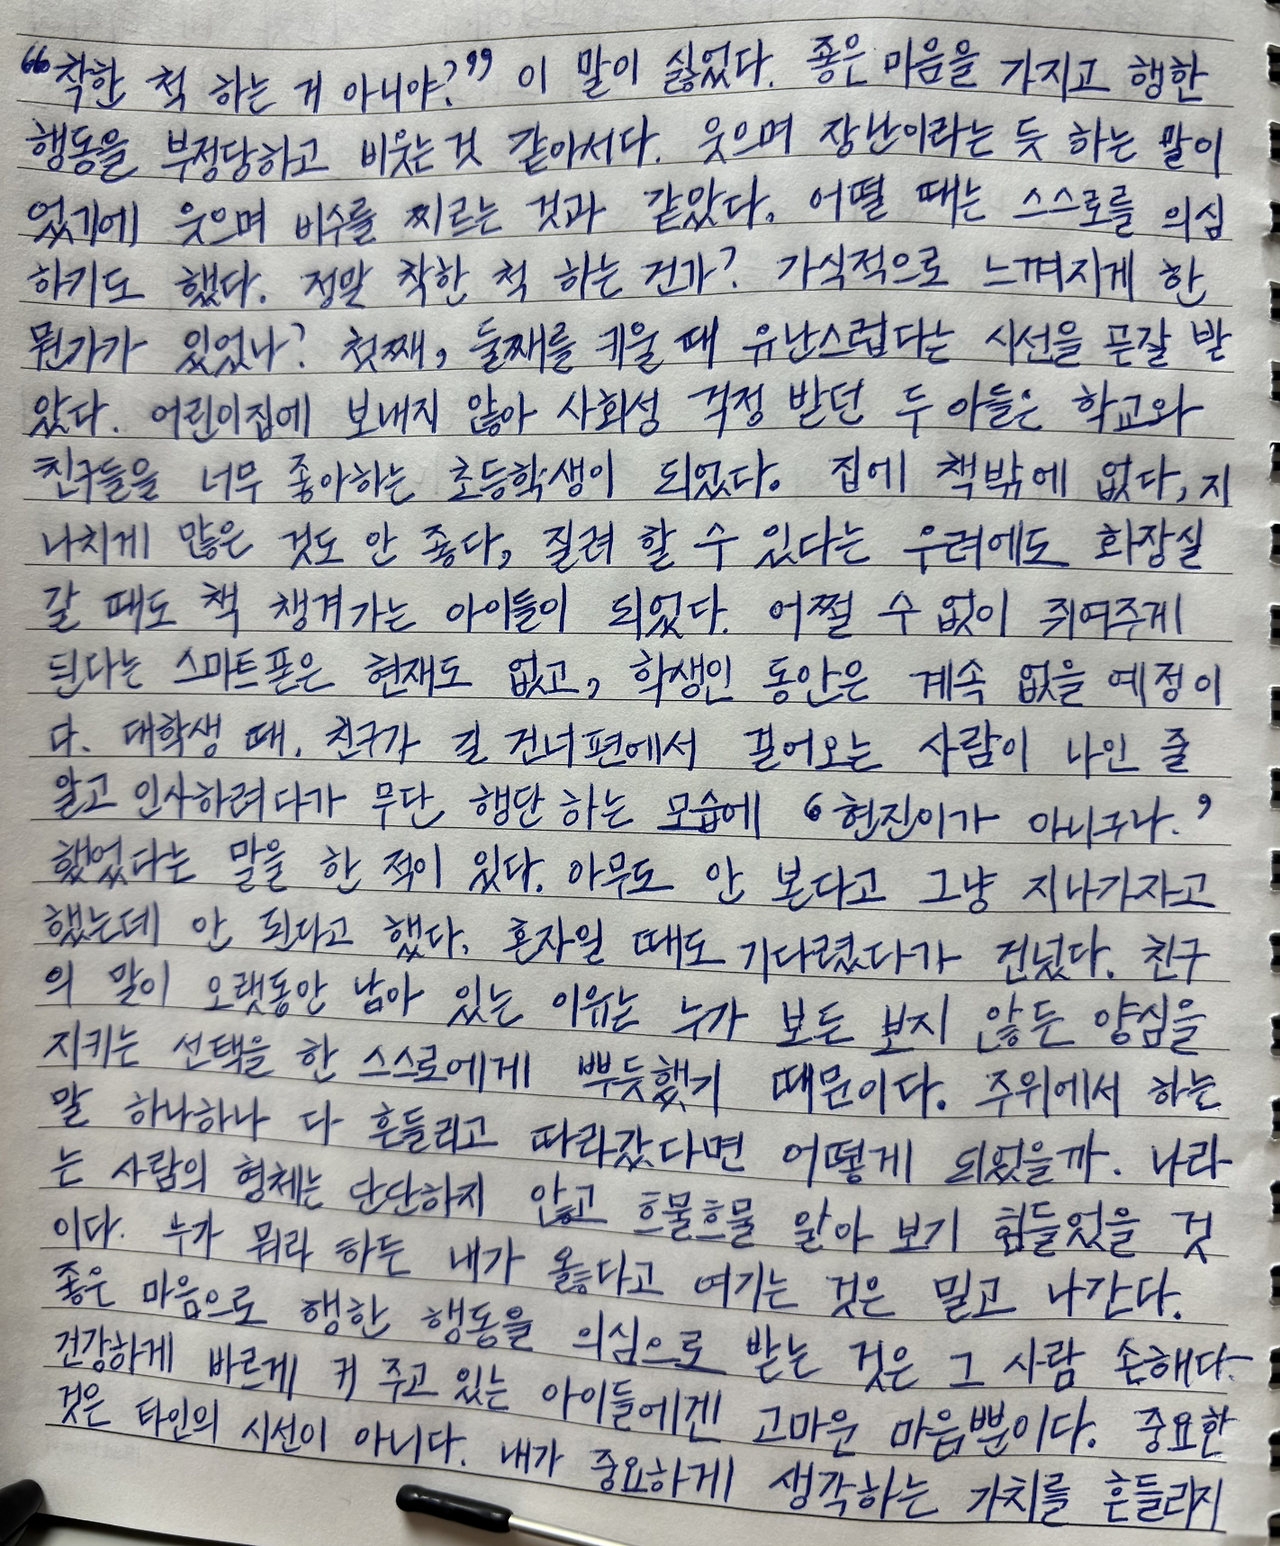 “착한 척 하는 거 아니야?” 이 말이 싫었다. 좋은 마음을 가지고 행한
행동을 부정당하고 비웃는것 같아서다. 웃으며 장난이라는 듯 하는 말이
었기에 웃으며 비수를 찌르는 것과 같았다. 어떨 때는 스스로를 의심
하기도 했다. 정말 착한 척 하는 건가? 가식적으로 느껴지게 한
뭔가가 있었나? 첫째, 둘째를 키울 때 유난스럽다는 시선을 곧잘 받
았다. 어린이집에 보내지 않아 사회성 걱정 받던 두 아들은 학교와
친구들을 너무 좋아하는 초등학생이 되었다. 집에 책밖에 없다, 지
나치게 많은 것도 안 좋다, 질려 할 수 있다는 우려에도 화장실
갈 때도 책 챙겨가는 아이들이 되었다. 어쩔 수 없이 쥐여주게
된다는 스마트폰은 현재도 없고, 학생인 동안은 계속 없을 예정이
다. 대학생 때, 친구가 길 건너편에서 걸어오는 사람이 나인 줄
알고 인사하려다가 무단 횡단 하는 모습에 ‘현진이가 아니구나.’
했었다는 말을 한 적이 있다. 아무도 안 본다고 그냥 지나가자고
했는데 안 된다고 했다. 혼자일 때도 기다렸다가 건넜다. 친구
의 말이 오랫동안 남아 있는 이유는 누가 보든 보지 않든 양심을
지키는 선택을 한 스스로에게 뿌듯했기 때문이다. 주위에서 하는
말 하나하나 다 흔들리고 따라갔다면 어떻게 되었을까. 나라
는 사람의 형체는 단단하지 않고 흐물흐물 알아 보기 힘들었을 것
이다. 누가 뭐라 하든 내가 옳다고 여기는 것은 밀고 나간다.
좋은 마음으로 행한 행동을 의심으로 받는 것은 그 사람 손해다.
건강하게 바르게 커 주고 있는 아이들에겐 고마운 마음뿐이다. 중요한
것은 타인의 시선이 아니다. 내가 중요하게 생각하는 가치를 흔들리지